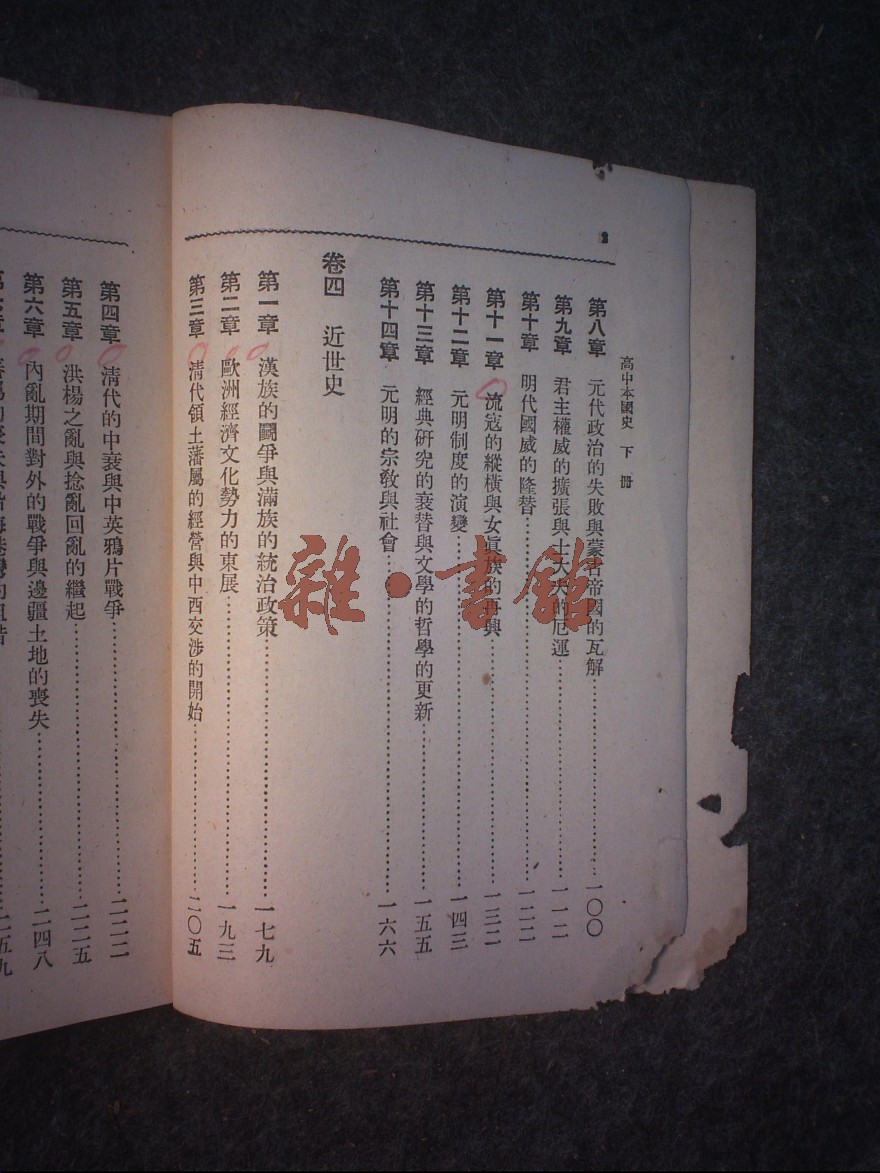 2
高中本國史 下冊
第八章 元代政治的失敗與蒙古帝國的瓦解 一〇〇
第九章 君主權威的擴張與士大夫的厄運 一一二
第十章 明代國威的隆替 一二二
第十一章 流寇的縱橫與女眞族的再興 一三二
第十二章 元明制度的演變 一四三
第十三章 經典研究的衰替與文學的哲學的更新 一五五
第十四章 元明的宗敎與社會 一六六
卷四 近世史
第一章 漢族的鬭爭與滿族的統治政策 一七九
第二章 歐洲經濟文化勢力的東展 一九三
第三章 清代領土藩屬的經營與中西交涉的開始 二〇五
第四章 清代的中衰與中英鴉片戰爭 二二二
第五章 洪楊之亂與捻亂回亂的繼起 二二五
第六章 內亂期間對外的戰爭與邊疆土地的喪失 二四八
二五九
雜·書館